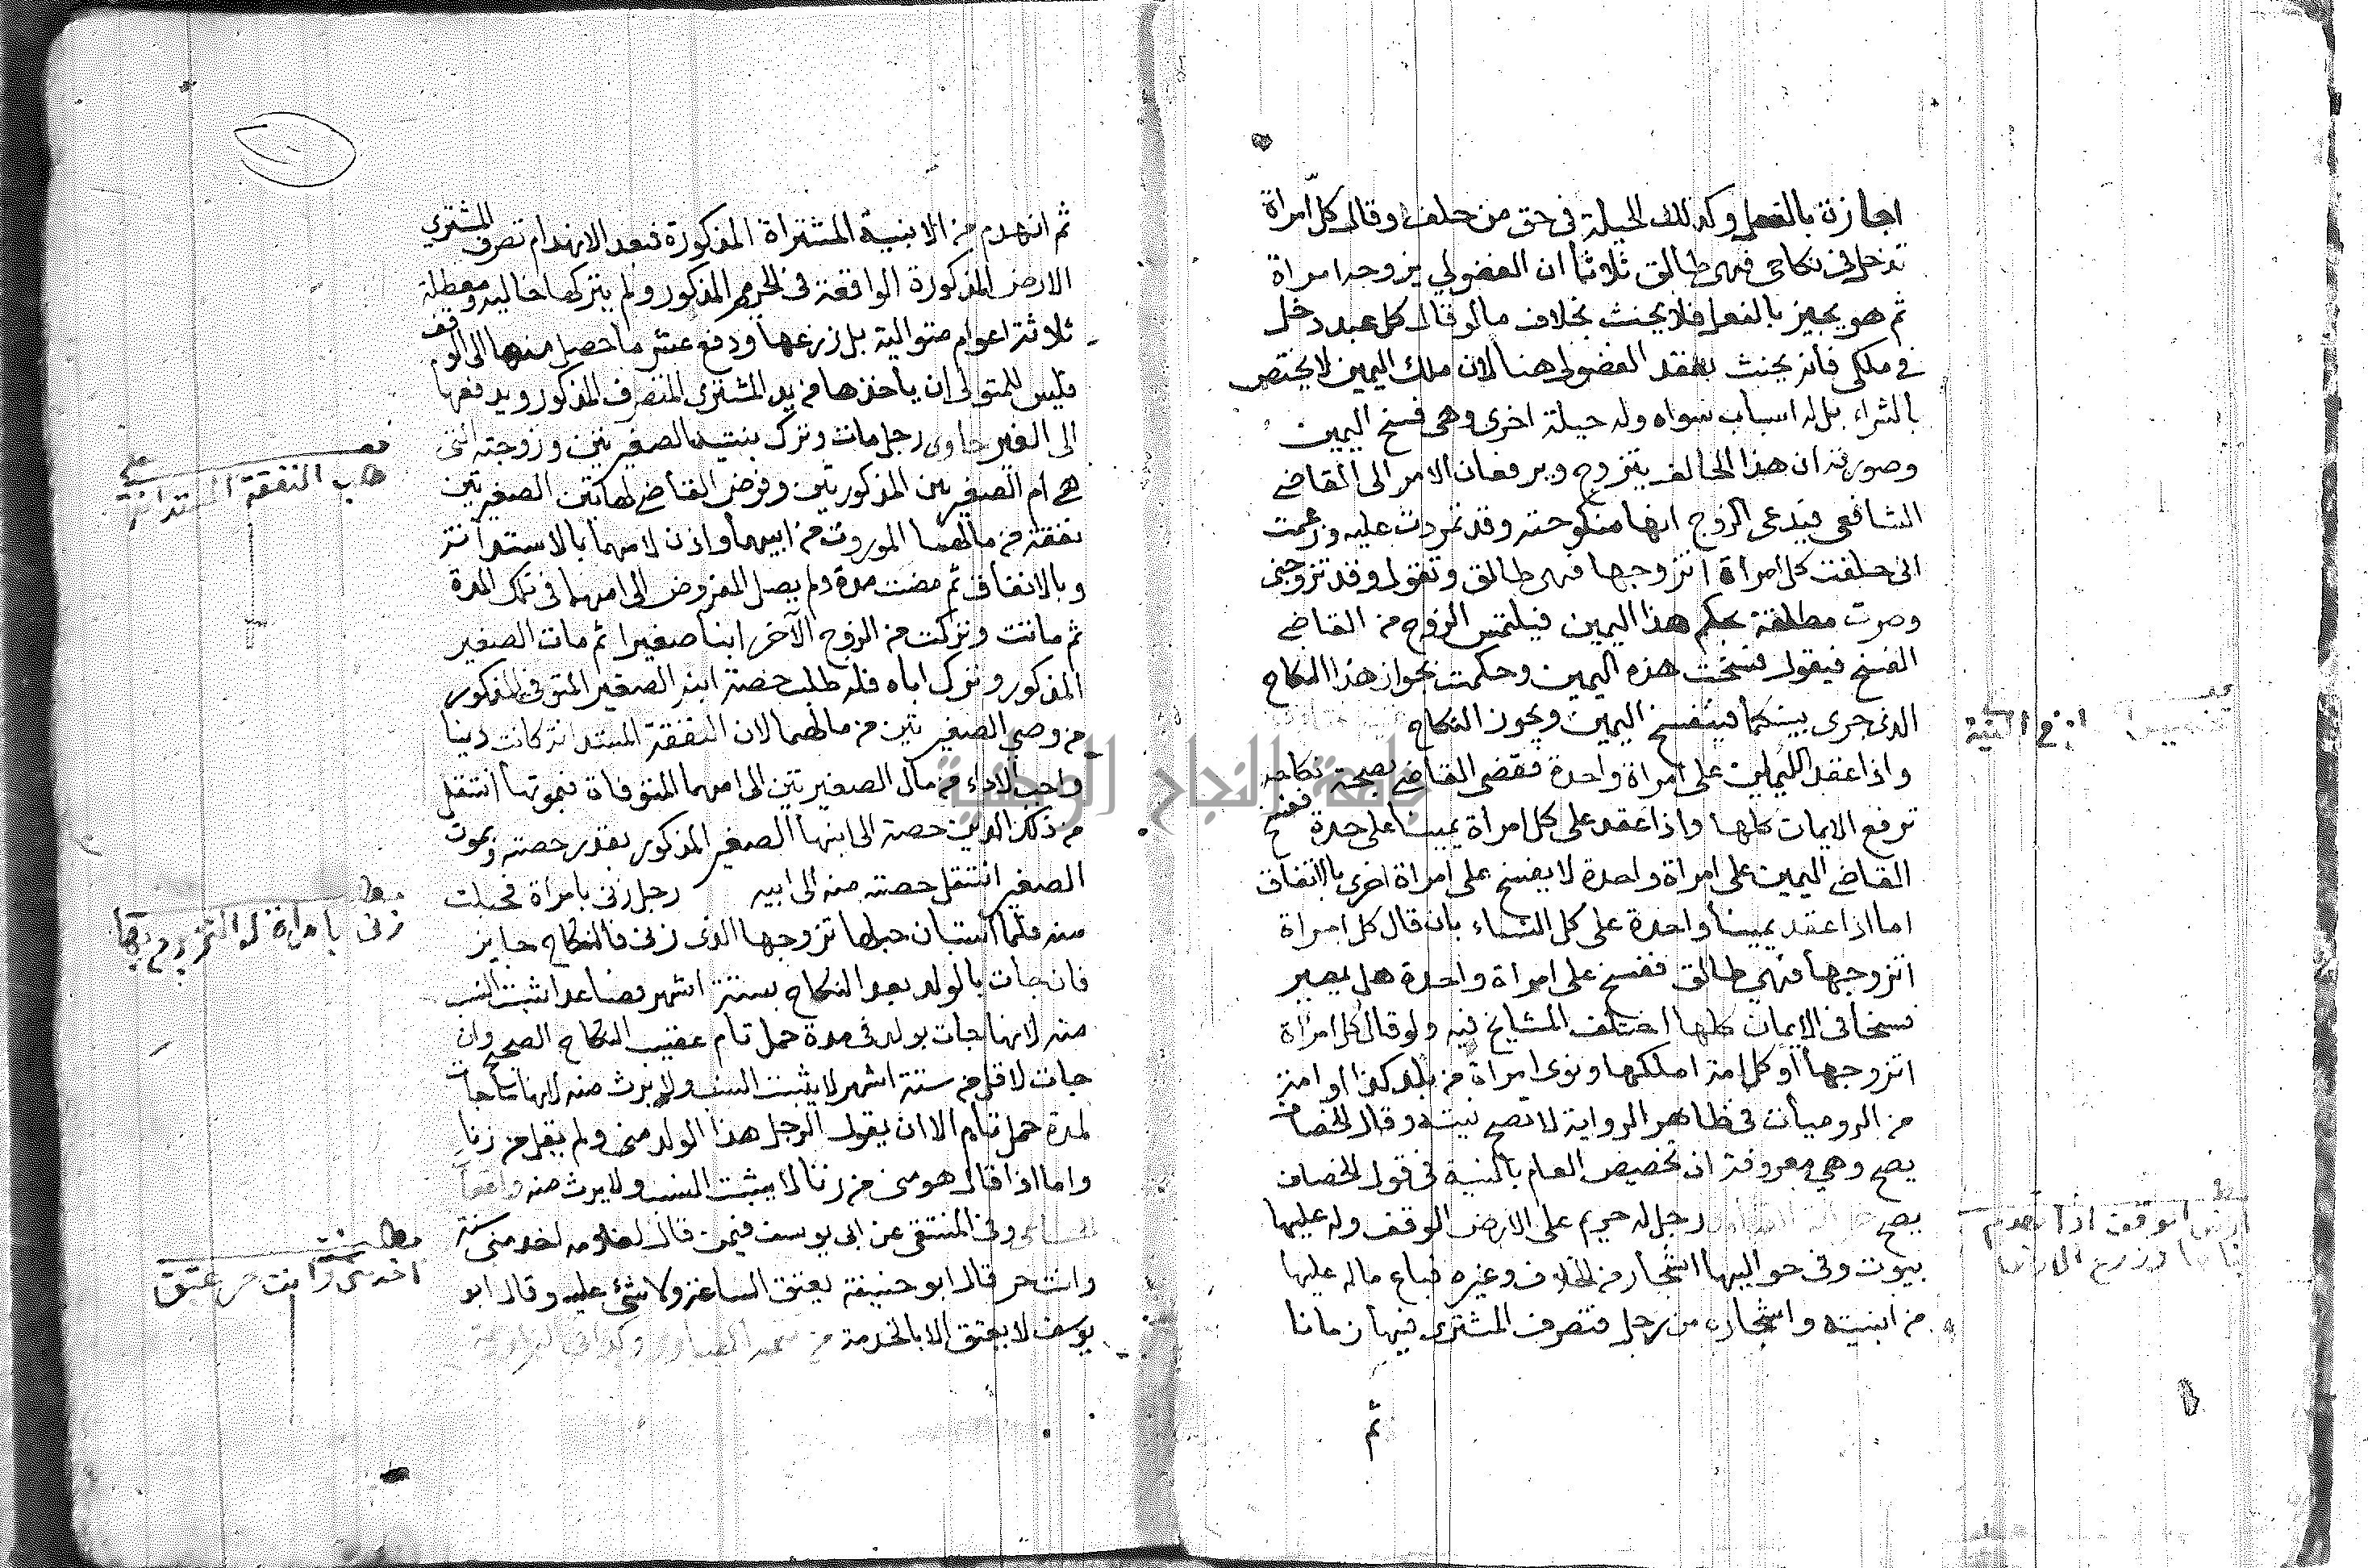 اجازة بالفعل وكذلك الحيلة في حق من حلف وقال كل امراة
تدخل في نكاحي فهي طالق ثلاثا ان الفضولي يزوجه امراة
ثم هو يجيز بالفعل فلا يحنث بخلاف ما لو قال كل عبد دخل
في ملكي فانه يحنث بعقد الفضولي هنا لان ملك اليمين لا يختص
بالشراء بل له اسباب سواه وله حيلة اخرى وهي فسخ اليمين
وصورته ان هذا الحالف يتزوج ويرفعان الامر الى القاضي
الشافعي فيدعي الزوج انها منكوحته وقد تمردت عليه وزعمت
اني حلفت كل امراة اتزوجها فهي طالق وتقول وقد تزوجني
وصرت مطلقة بحكم هذا اليمين فيلتمس الزوج من القاضي
الفسخ فيقول فسخت هذه اليمين وحكمت بجواز هذا النكاح
الذي جرى بينكما فينفسخ اليمين ويجوز النكاح
واذا عقد اليمين على امراة واحدة فقضى القاضي بصحة نكاحه
ترفع الايمان كلها واذا عقد على كل امراة يمينا على حدة ففسخ
القاضي اليمين على امراة واحدة لا يفسخ على امراة اخرى بالاتفاق
اما اذا عقد يمينا واحدة على كل النساء بان قال كل امراة
اتزوجها فهي طالق ففسخ على امراة واحدة هل يصير
فسخا في الايمان كلها اختلف المشايخ فيه ولو قال كل امراة
اتزوجها او كل امة املكها ونوى امراة من بلد كذا او امة
من الروميات في ظاهر الرواية لا تصح نيته وقال الخصاف
يصح وهي معروفة ان تخصيص العام بالنية في قول الخصاف
يصح رجل له حريم على الارض الوقف وله عليها
بيوت وفي حواليها اشجار من الخلاف وغيره فباع ماله عليها
من ابنيته واشجاره من رجل فتصرف المشتري فيها زمانا
ثم
النية
ارض الوقف اذا انهدم
ثم انهدم من الابنية المشتراة المذكورة فبعد الانهدام تصرف المشتري
الارض المذكورة الواقعة في الحريم المذكور ولم يتركها خالية ومعطلة
ثلاثة اعوام متوالية بل زرعها ودفع عشر ما حصل منها الى الوقف
فليس للمتولي ان ياخذها من يد المشتري المتصرف المذكور ويدفعها
الى الغير حاوي رجل مات وترك بنتيه الصغيرتين وزوجته التي
هي ام الصغيرتين المذكورتين وفرض القاضي لهاتين الصغيرتين
نفقة من مالهما الموروث من ابيهما واذن لامهما بالاستدانة
وبالانفاق ثم مضت مدة ولم يصل المفروض الى امهما في تلك المدة
ثم ماتت وتركت من الزوج الآخر ابنا صغيرا ثم مات الصغير
المذكور وترك اباه فله طلب حصة ابنه الصغير المتوفى المذكور
من وصي الصغيرتين من مالهما لان النفقة المستدانة كانت دينا
واجب الاداء من مال الصغيرتين الى امهما المتوفاة فبموتها انتقل
من ذلك الدين حصة الى ابنها الصغير المذكور بقدر حصته وبموت
الصغير انتقل حصته منه الى ابيه رجل زنى بامراة فحبلت
منه فلما استبان حبلها تزوجها الذي زنى فالنكاح جايز
فان جات بالولد بعد النكاح بستة اشهر فصاعدا ثبت النسب
منه لانها جات بولد في مدة حمل تام عقيب النكاح الصحيح وان
جات لاقل من ستة اشهر لا يثبت النسب ولا يرث منه لانها ما جات
لمدة حمل تام الا ان يقول الرجل هذا الولد مني ولم يقل من زنا
واما اذا قال هو مني من زنا لا يثبت النسب ولا يرث منه
وفي المنتقى عن ابي يوسف فيمن قال لغلامه اخدمني سنة
وانت حر قال ابو حنيفة يعتق الساعة ولا شئ عليه وقال ابو
يوسف لا يعتق الا بالخدمة
طلب النفقة المستدانة
مطلب
زنى بامراة له التزوج بها
مطلب
اخدمني وانت حر عتق
جامعة النجاح الوطنية